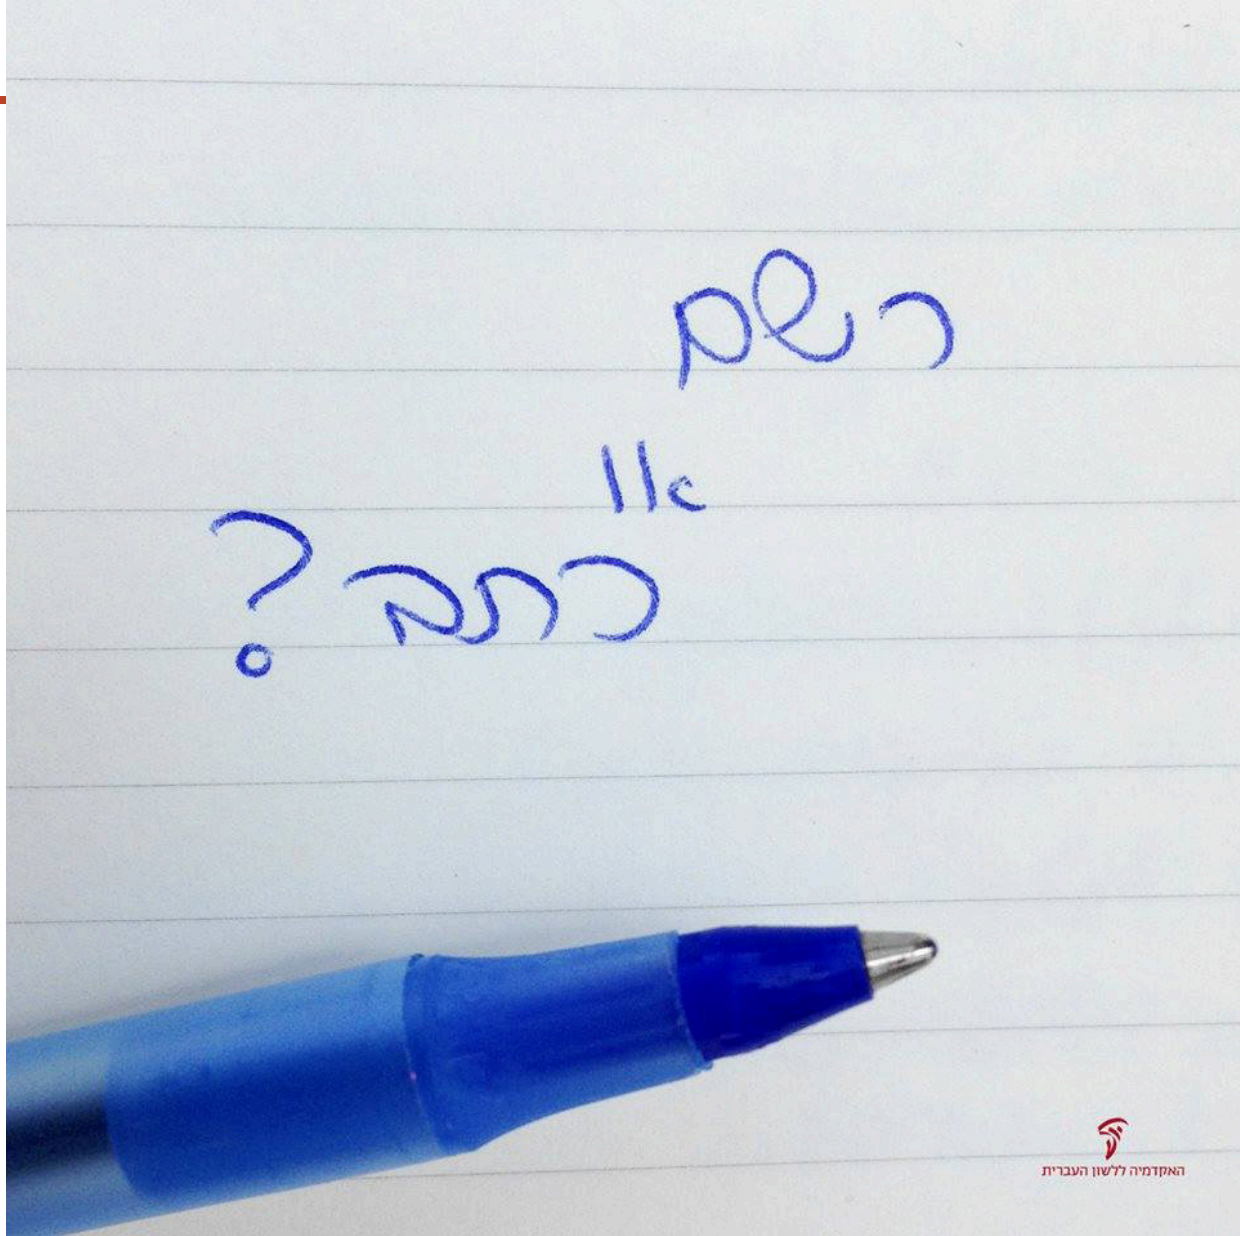 רשם
או
כתב?
האקדמיה ללשון העברית